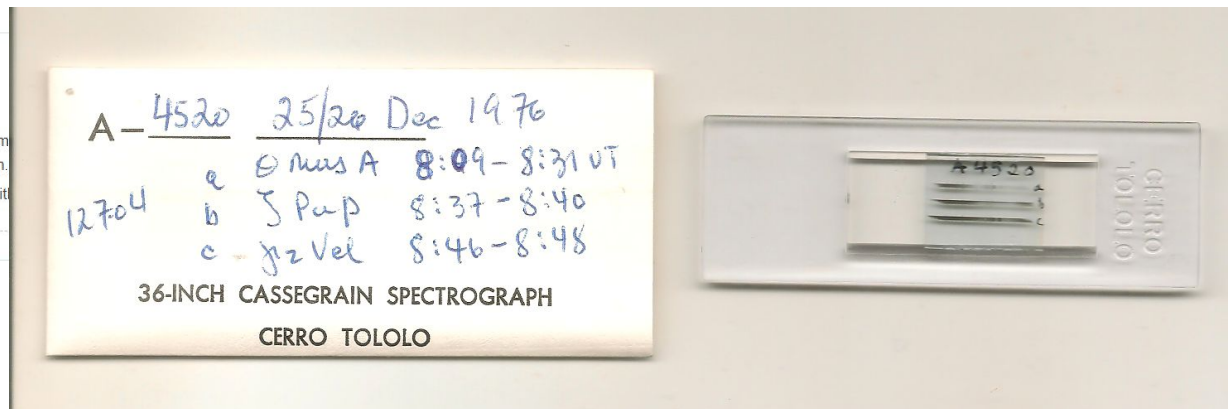 A-4520 25/26 Dec 1976
a Θ Mus A 8:09-8:31 UT
12704
b ζ Pup 8:37-8:40
c γ2 Vel 8:46-8:48
36-INCH CASSEGRAIN SPECTROGRAPH
CERRO TOLOLO
A 4520
a
b
c
CERRO
TOLOLO